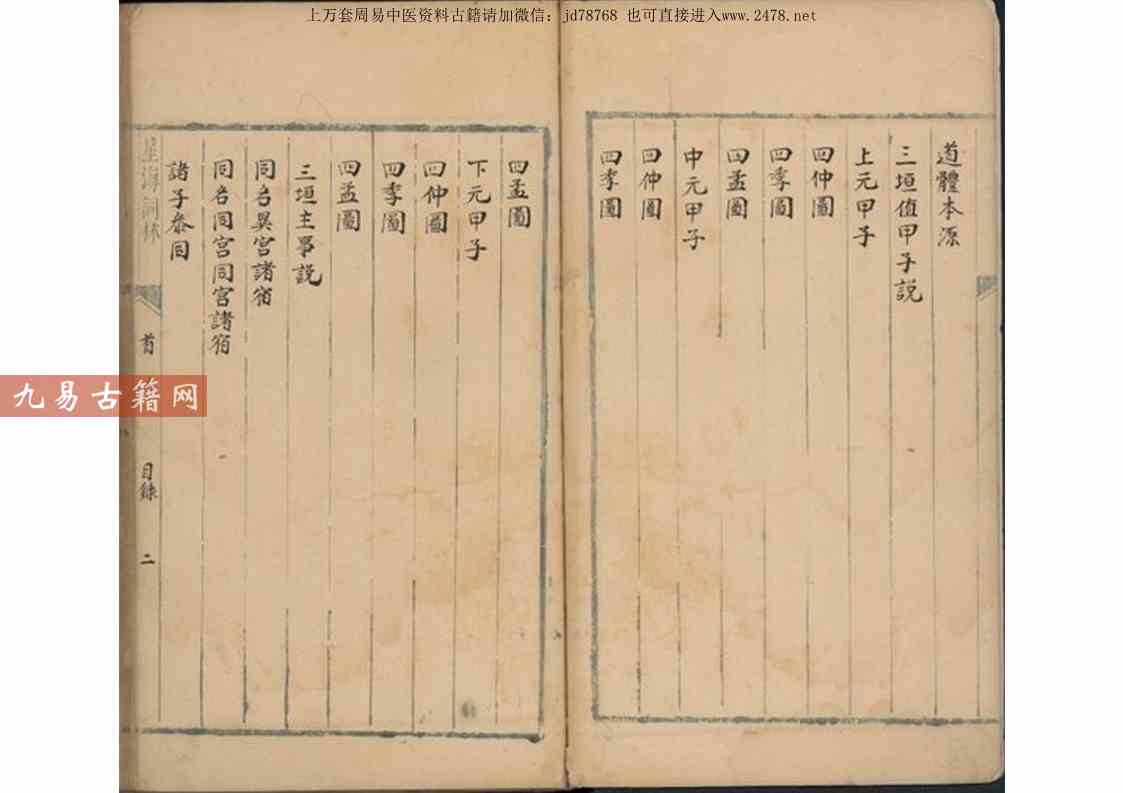 上万套周易中医资料古籍请加微信：jd78768 也可直接进入www.2478.net
道體本源
三垣值甲子説
上元甲子
四仲圖
四季圖
四孟圖
中元甲子
四仲圖
四季圖
四孟圖
下元甲子
四仲圖
四季圖
四孟圖
三垣主事説
同名異宮諸宿
同名同宮同宮諸宿
諸子叅同
星海詞林
首
目錄
二
九易古籍网